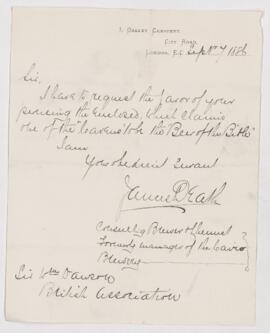 1, OAKLEY CRESCENT,
CITY ROAD,
LONDON, E.C. Septr 7 1886
Sir,
I have to request the favor of your
perusing the Enclosed, which claims
one of the "leavens" to be the Beer of the Bible"
I am
Your obedient Servant
James Death
Consulting Brewer & Chemist
Formerly manager of the Cairo
Brewery
Sir Wm Dawson
British Association